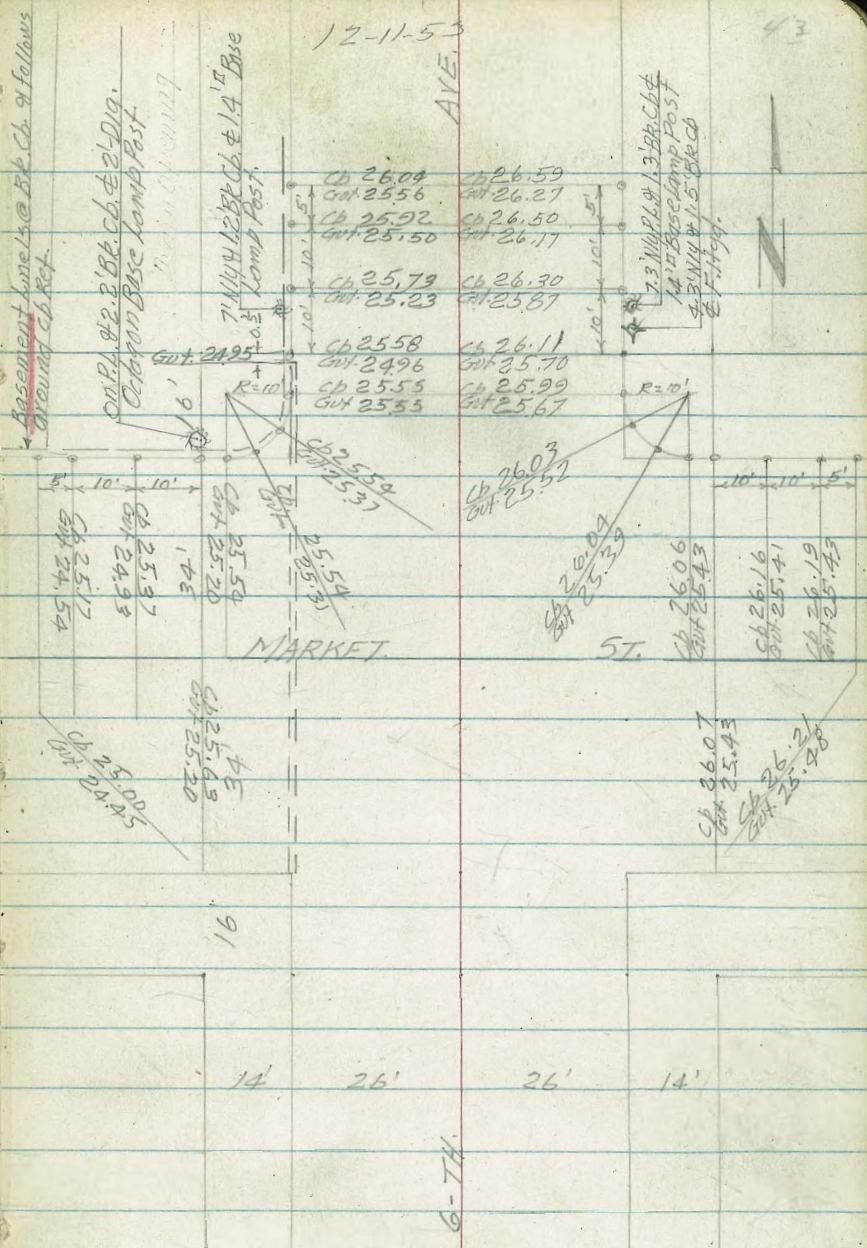 12-11-53
43
AVE.
Basement Line is @ Bk. Cb. & follows
around Cb Ret.
On P.L. & 2.2' Bk. Cb. ¢ 2'-Dia.
Octagon Base Lamp Post
7' N'ly & 1.2' Bk Cb ¢ 1.4'□ Base
Lamp Post.
7.3' N'ly P.L. & 1.3' Bk. Cb ¢
14'□ Base Lamp Post
4.3' N'ly & 1.5' Bk Cb
¢ F. Hyd.
Cb 26.04
Gut 25.56
Cb 26.59
Gut 26.27
5'
5'
Cb 25.92
Gut. 25.50
Cb 26.50
Gut. 26.17
10'
10'
Cb 25.79
Gut 25.23
Cb 26.30
Gut 25.87
10'
10'
0.5'
Cb 25.58
Gut 24.96
Cb 26.11
Gut 25.70
Gut. 24.95
Cb 25.55
Gut 25.53
Cb 25.99
Gut 25.67
R=10'
R=10'
16'
Cb 25.54
Gut. 25.37
Cb 26.03
Gut 25.52
25.54
25.31
Cb 26.04
Gut 25.39
5'
10'
10'
10'
10'
5'
Cb 25.17
Gut 24.54
Cb 25.37
Gut 24.93
34'
Cb 25.50
Gut 25.20
Cb 26.06
Gut 25.43
Cb 26.16
Gut 25.41
Cb 26.19
Gut 25.43
MARKET ST.
Cb 25.00
Gut 24.45
Cb 25.63
Gut 25.20
34'
Cb 26.07
Gut 25.43
Cb 26.21
Gut 25.48
16'
14'
26'
26'
14'
6-TH.